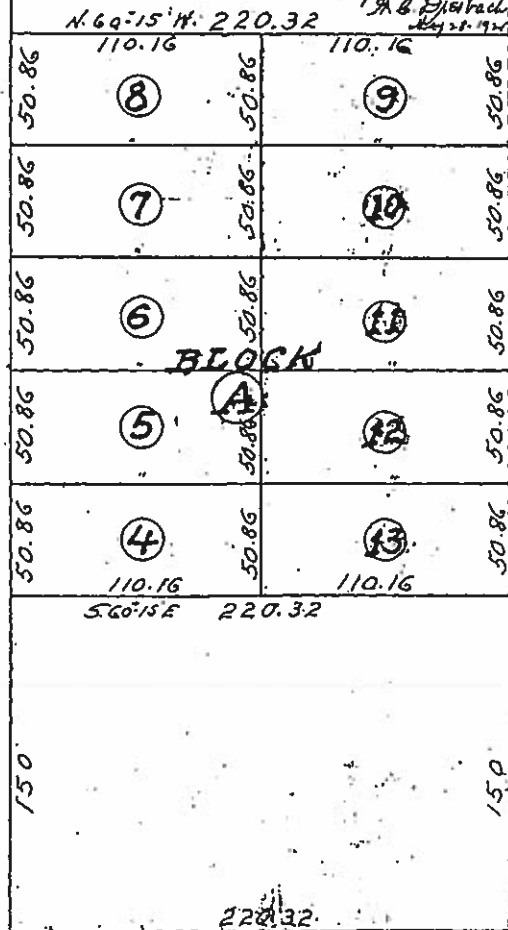 N. 60°-15' W. 220.32
110.16 110.16
50.86 8 50.86 9 50.86
50.86 7 50.86 10 50.86
"
50.86 6 50.86 11 50.86
"
BLOCK
A
50.86 5 50.86 12 50.86
" "
50.86 4 50.86 13 50.86
110.16 110.16
S.60°-15'E 220.32
150 150
220.32